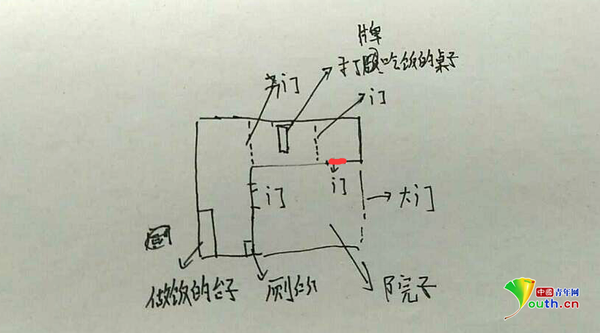 牌
打 吃饭的桌子
门
门
门
门
大门
做饭的台子
厕所
院子
中國青年网
Youth.cn